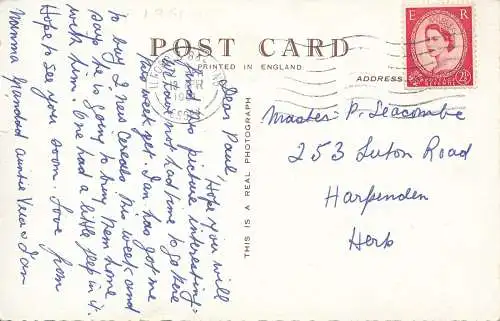 1961
POST CARD
PRINTED IN ENGLAND
ADDRESS
E R
2½
THIS IS A REAL PHOTOGRAPH
Dear Paul, Hope you will
find this picture interesting,
we have not had time to go here
this week yet. Ian has got me
to buy 2 new cereals this week and
says he is going to bring them home
with him. One had a little jeep in it.
Hope to see you soon. Love from
Nomma Grandad Auntie Vera & Ian
Master P. Seacombe
253 Luton Road
Harpenden
Herts